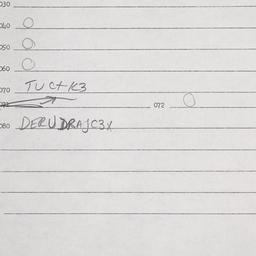 030
040 O
050 O
060 O
070 TUC+K3
072 O
080 DERUDRAJC3X